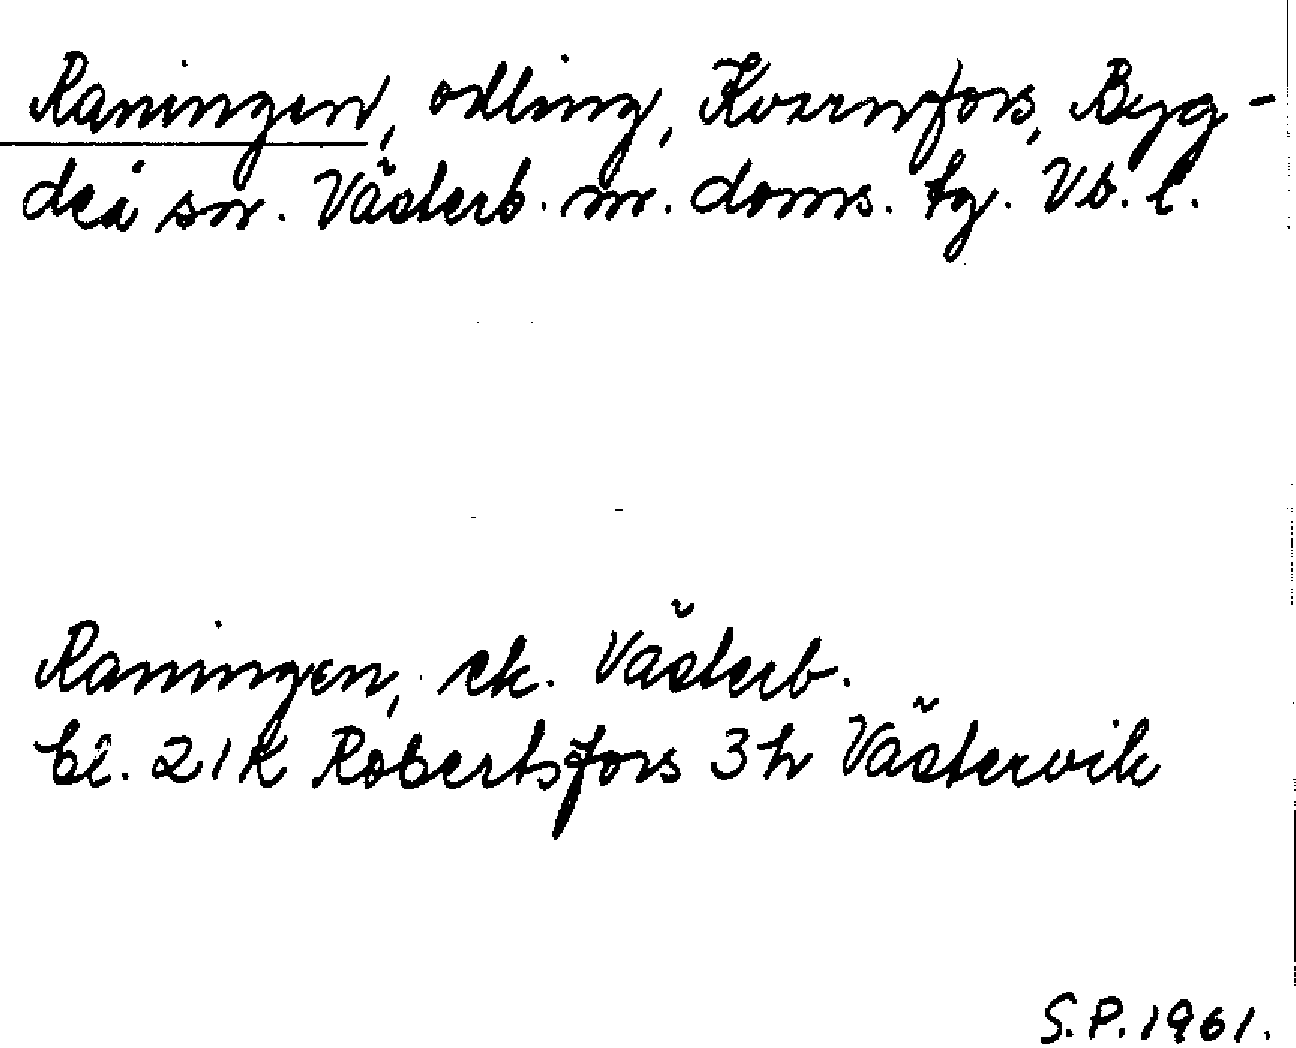 Raningen, odling, Kvarnfors, Byg-
deå sn. Västerb. m. doms. tg. Vb. l.
Raningen, ek. Västerb.
bl. 21K Robertsfors 3h Västervik
S.P. 1961.